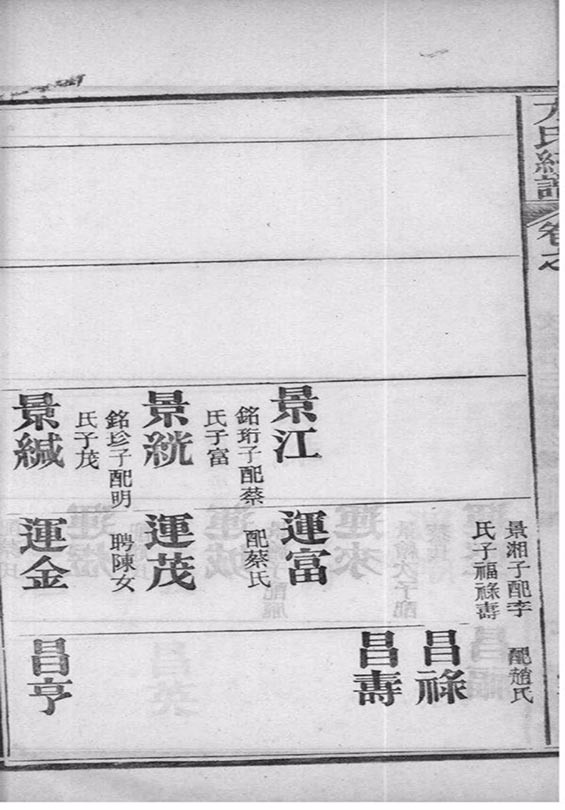 景江
銘珩子配蔡
氏子富
景絖
銘珍子配明
氏子茂
景緘
景湘子配李
氏子福祿壽
運富
配蔡氏
運茂
聘陳女
運金
配趙氏
昌祿
昌壽
昌亨